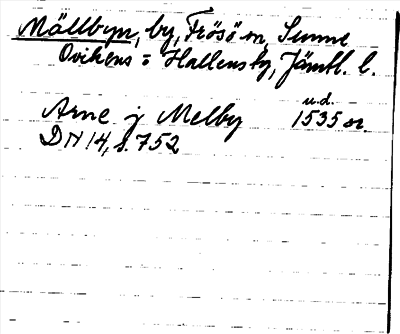 Mällbyn, by, Frösö sn, Sunne
Ovikens o Hallens tg, Jämtl. l.
Arne j Melby u.d. 1535 or.
DN 14, s. 752